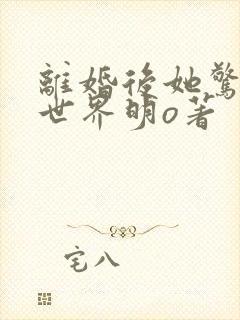 離婚後她驚
世界明o著
宅八